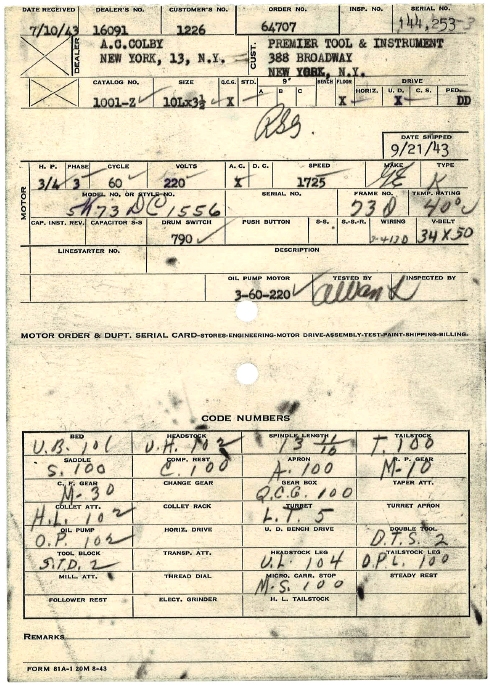 DATE RECEIVED DEALER'S NO. CUSTOMER'S NO. ORDER NO. INSP. NO. SERIAL NO.
7/10/43 16091 1226 64707 144,253-3
DEALER A.C.COLBY CUST. PREMIER TOOL & INSTRUMENT
NEW YORK, 13, N.Y. 388 BROADWAY
NEW YORK, N.Y.
CATALOG NO. SIZE Q.C.G. STD. 9" BENCH FLOOR DRIVE
A B C HORIZ. U.D. C.S. PED.
1001-Z 10Lx3½ X X X DD
DATE SHIPPED
9/21/43
MOTOR
H.P. PHASE CYCLE VOLTS A.C. D.C. SPEED MAKE TYPE
3/4 3 60 220 X 1725 GE K
MODEL NO. OR STYLE NO. SERIAL NO. FRAME NO. TEMP. RATING
5K73DC1556 73D 40°
CAP. INST. REV. CAPACITOR S-S DRUM SWITCH PUSH BUTTON S-S. S-S-R. WIRING V-BELT
790 34X50
LINESTARTER NO. DESCRIPTION
OIL PUMP MOTOR TESTED BY INSPECTED BY
3-60-220
MOTOR ORDER & DUPT. SERIAL CARD-STORES-ENGINEERING-MOTOR DRIVE-ASSEMBLY-TEST-PAINT-SHIPPING-BILLING.
CODE NUMBERS
BED HEADSTOCK SPINDLE LENGTH TAILSTOCK
U.B. 101 U.H. 102 13 11/16 T. 100
SADDLE COMP. REST APRON R. P. GEAR
S. 100 C. 100 A. 100 M-10
C. F. GEAR CHANGE GEAR GEAR BOX TAPER ATT.
M-30 Q.C.G. 100
COLLET ATT. COLLET RACK TURRET TURRET APRON
H.L. 102 L.T. 5
OIL PUMP HORIZ. DRIVE U. D. BENCH DRIVE DOUBLE TOOL
O.P. 102 D.T.S. 2
TOOL BLOCK TRANSP. ATT. HEADSTOCK LEG TAILSTOCK LEG
S.T.D. 2 U.L. 104 D.P.L. 100
MILL. ATT. THREAD DIAL MICRO. CARR. STOP STEADY REST
M-S. 100
FOLLOWER REST ELECT. GRINDER H. L. TAILSTOCK
REMARKS
FORM 81A-1 20M 8-43